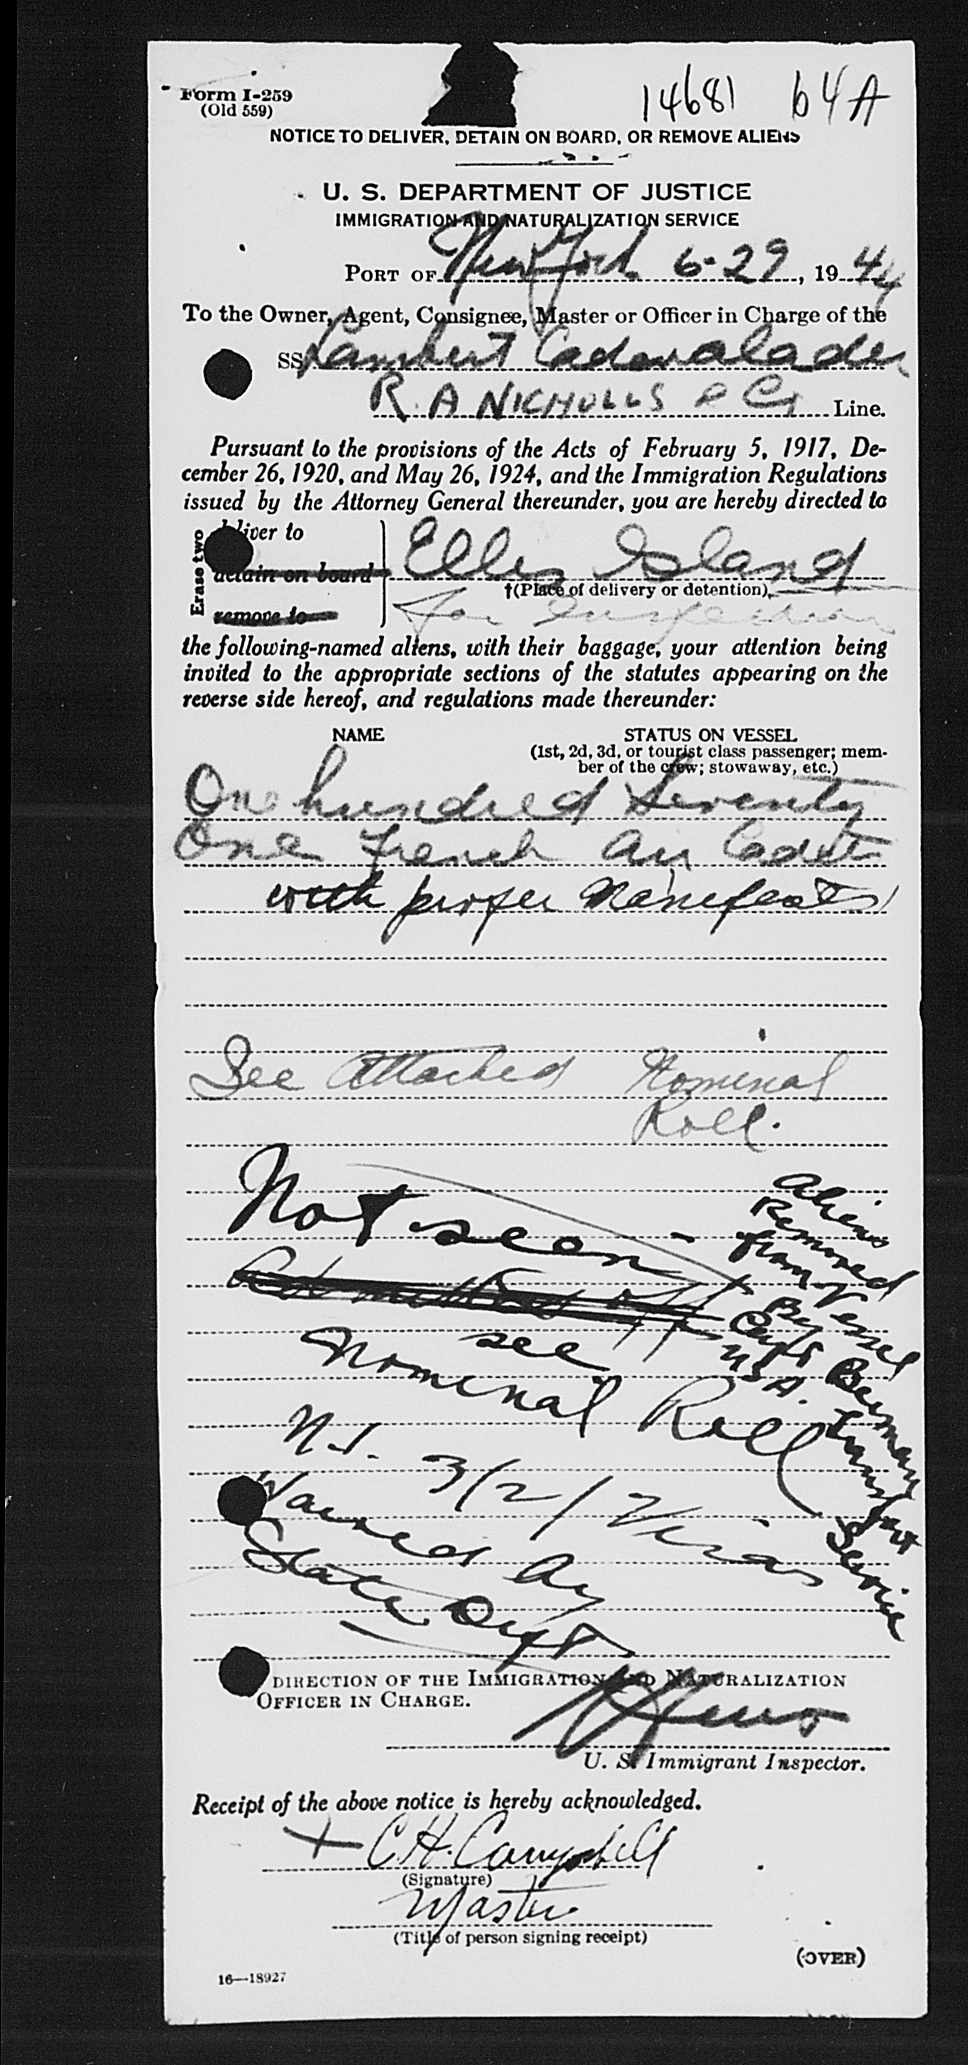 Form I-259
(Old 559)
14681 64A
NOTICE TO DELIVER, DETAIN ON BOARD, OR REMOVE ALIENS
U. S. DEPARTMENT OF JUSTICE
IMMIGRATION AND NATURALIZATION SERVICE
PORT OF New York 6-29, 1944
To the Owner, Agent, Consignee, Master or Officer in Charge of the
SS Lambert Cadwalader
R. A NICHOLLS & Co Line.
Pursuant to the provisions of the Acts of February 5, 1917, De-
cember 26, 1920, and May 26, 1924, and the Immigration Regulations
issued by the Attorney General thereunder, you are hereby directed to
Erase two
deliver to
detain on board
remove to
Ellis Island
†(Place of delivery or detention),
for Inspection
the following-named aliens, with their baggage, your attention being
invited to the appropriate sections of the statutes appearing on the
reverse side hereof, and regulations made thereunder:
NAME
STATUS ON VESSEL
(1st, 2d, 3d, or tourist class passenger; mem-
ber of the crew; stowaway, etc.)
One hundred Seventy
One French Air Cadets
with proper Manifests
See Attached Nominal
Roll.
Not seen -
see
Nominal Roll
N.I. 3/2/ Visas
Waived by
State Dept
Aliens
Removed
from Vessel
By
Capt Berman
USA. Transport
Service
DIRECTION OF THE IMMIGRATION AND NATURALIZATION
OFFICER IN CHARGE.
U. S. Immigrant Inspector.
Receipt of the above notice is hereby acknowledged.
+ C.H. Campbell
(Signature)
Master
(Title of person signing receipt)
(OVER)
16—18927